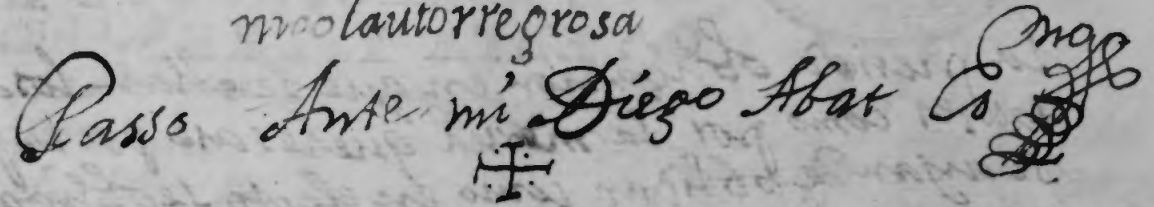 nicolautorregrosa
Passo Ante mi Diego Abat Es no